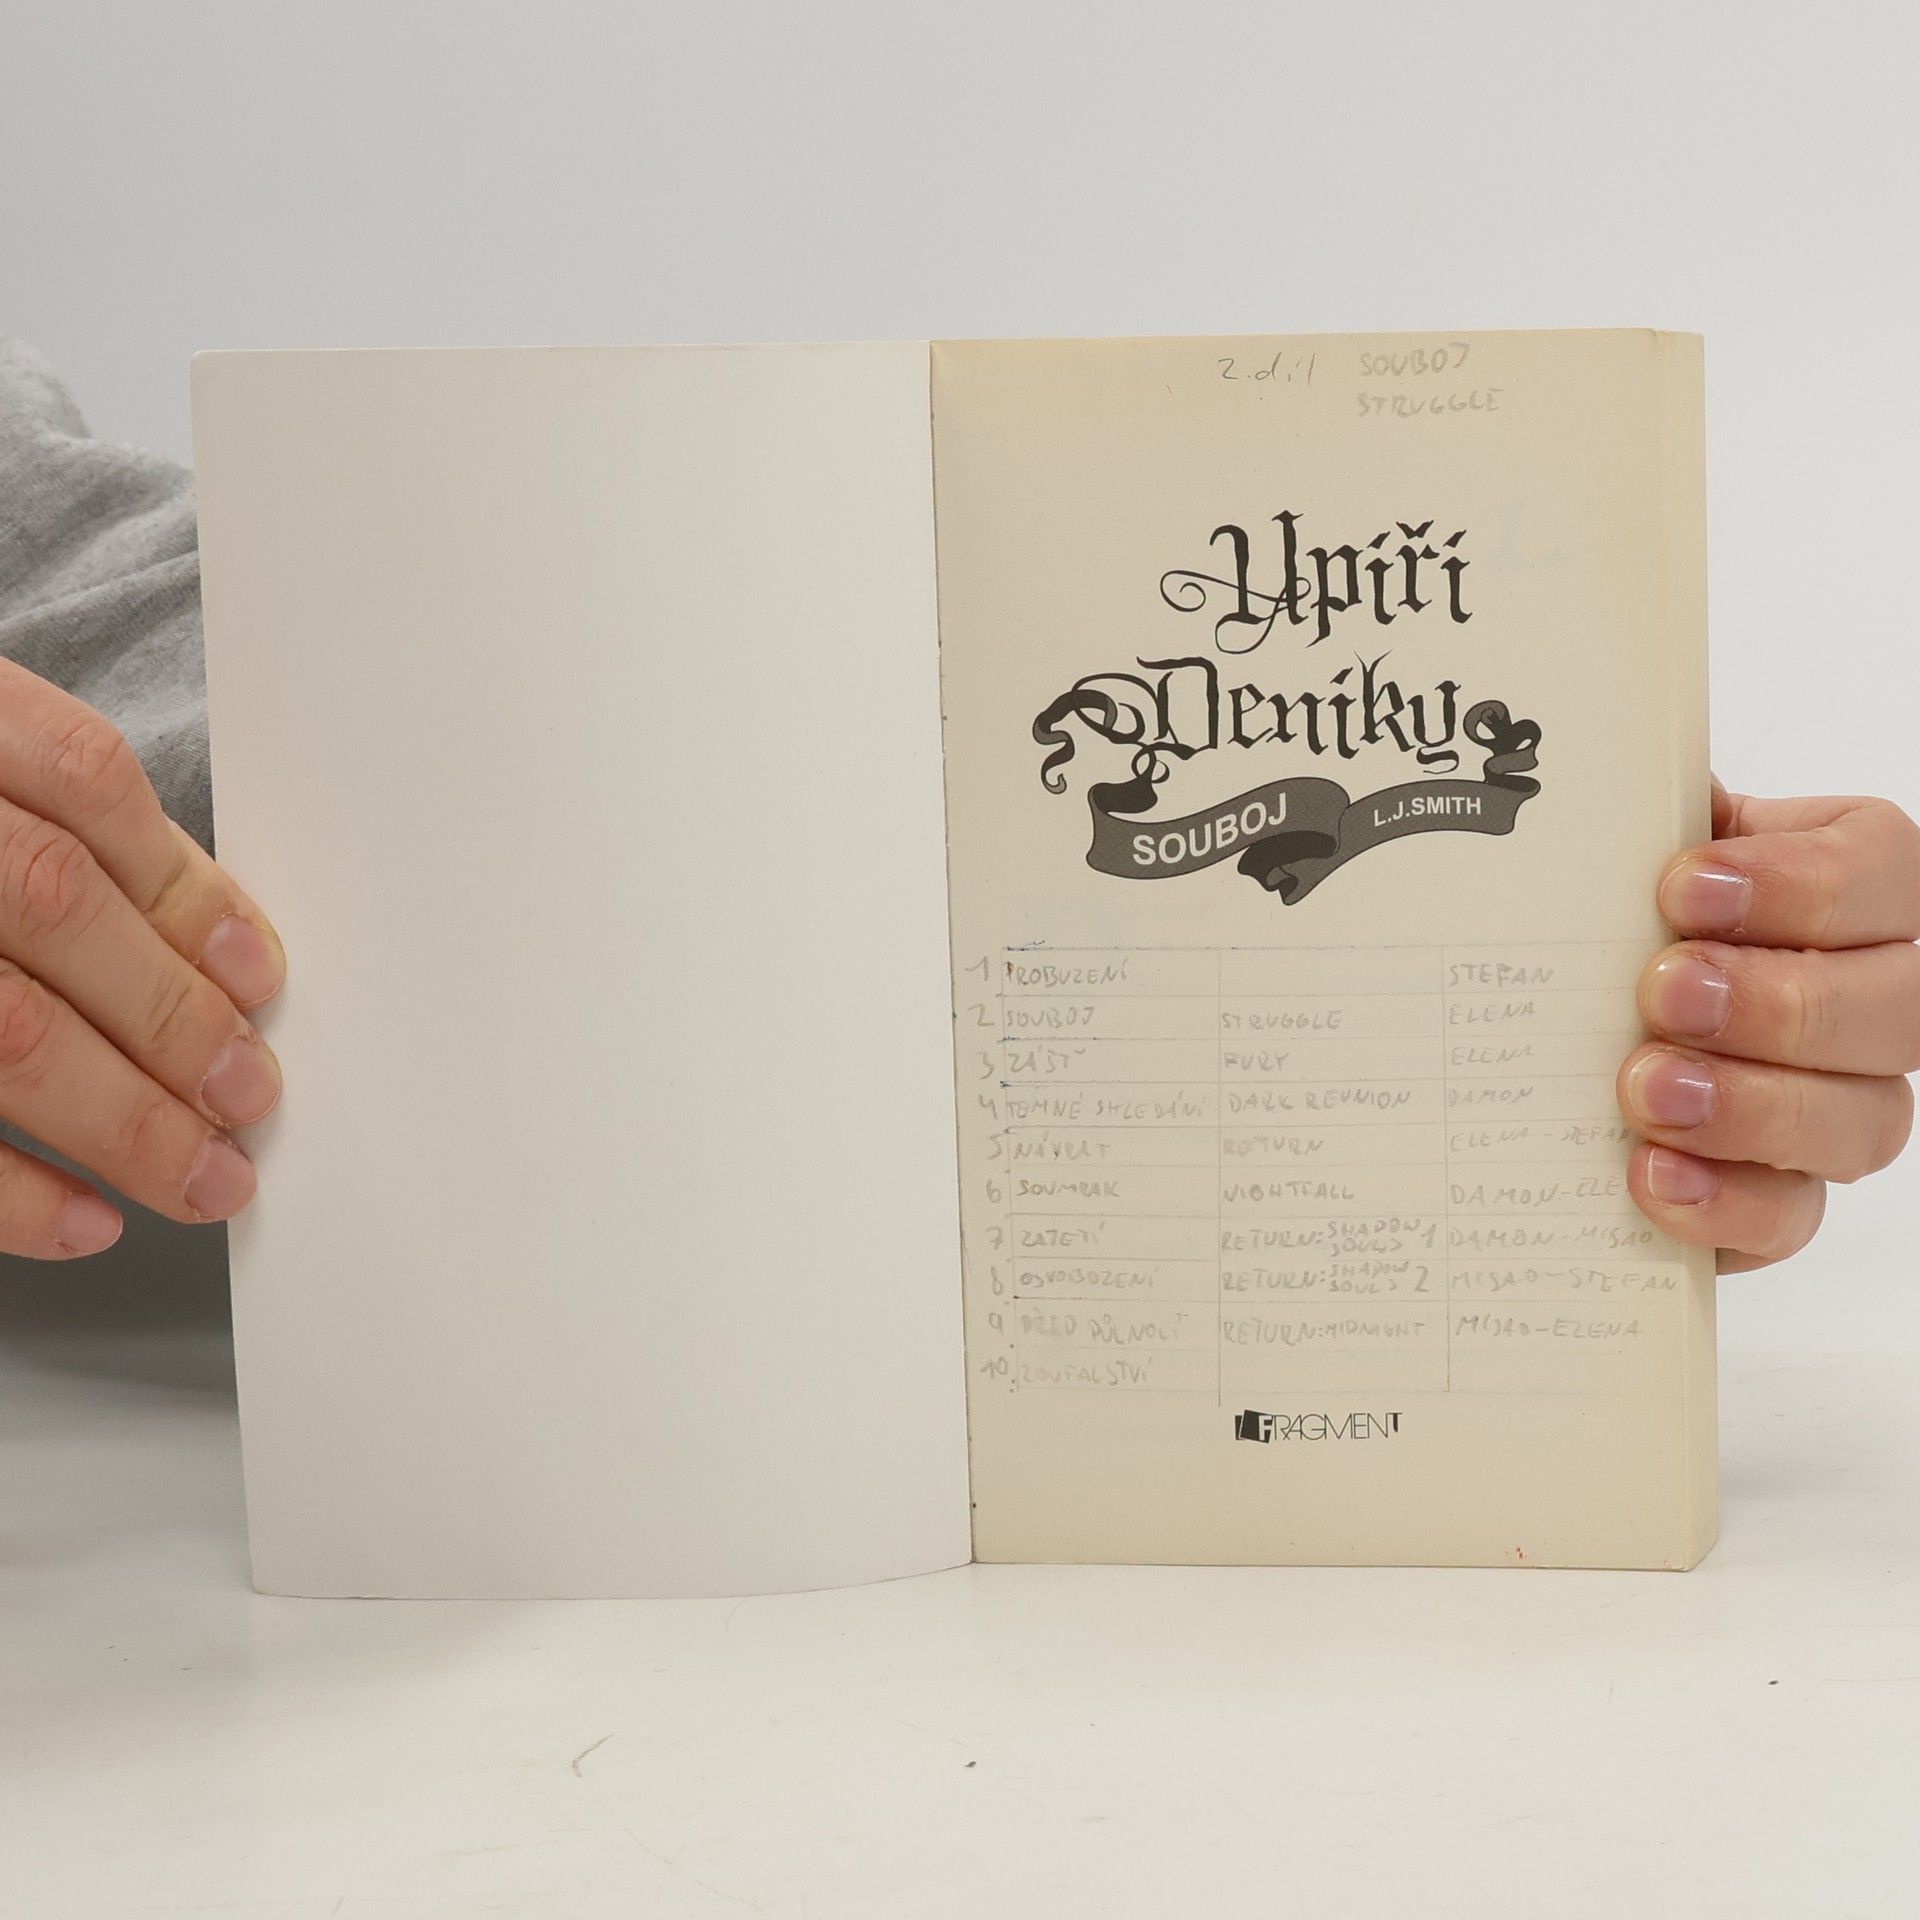 2.díl SOUBOJ
STRUGGLE
Upíří
Deníky
SOUBOJ L.J.SMITH
1 PROBUZENÍ STEFAN
2 SOUBOJ STRUGGLE ELENA
3 ZÁŠŤ FURY ELENA
4 TEMNÉ SHLEDÁNÍ DARK REUNION DAMON
5 NÁVRAT RETURN ELENA - STEFAN
6 SOUMRAK NIGHTFALL DAMON-ELE
7 ZATETÍ RETURN: SHADOW SOULS 1 DAMON-MISAO
8 OSVOBOZENÍ RETURN: SHADOW SOULS 2 MISAO-STEFAN
9 PŘED PŮLNOCÍ RETURN: MIDNIGHT MISAO-ELENA
10 ZOUFALSTVÍ
FRAGMENT